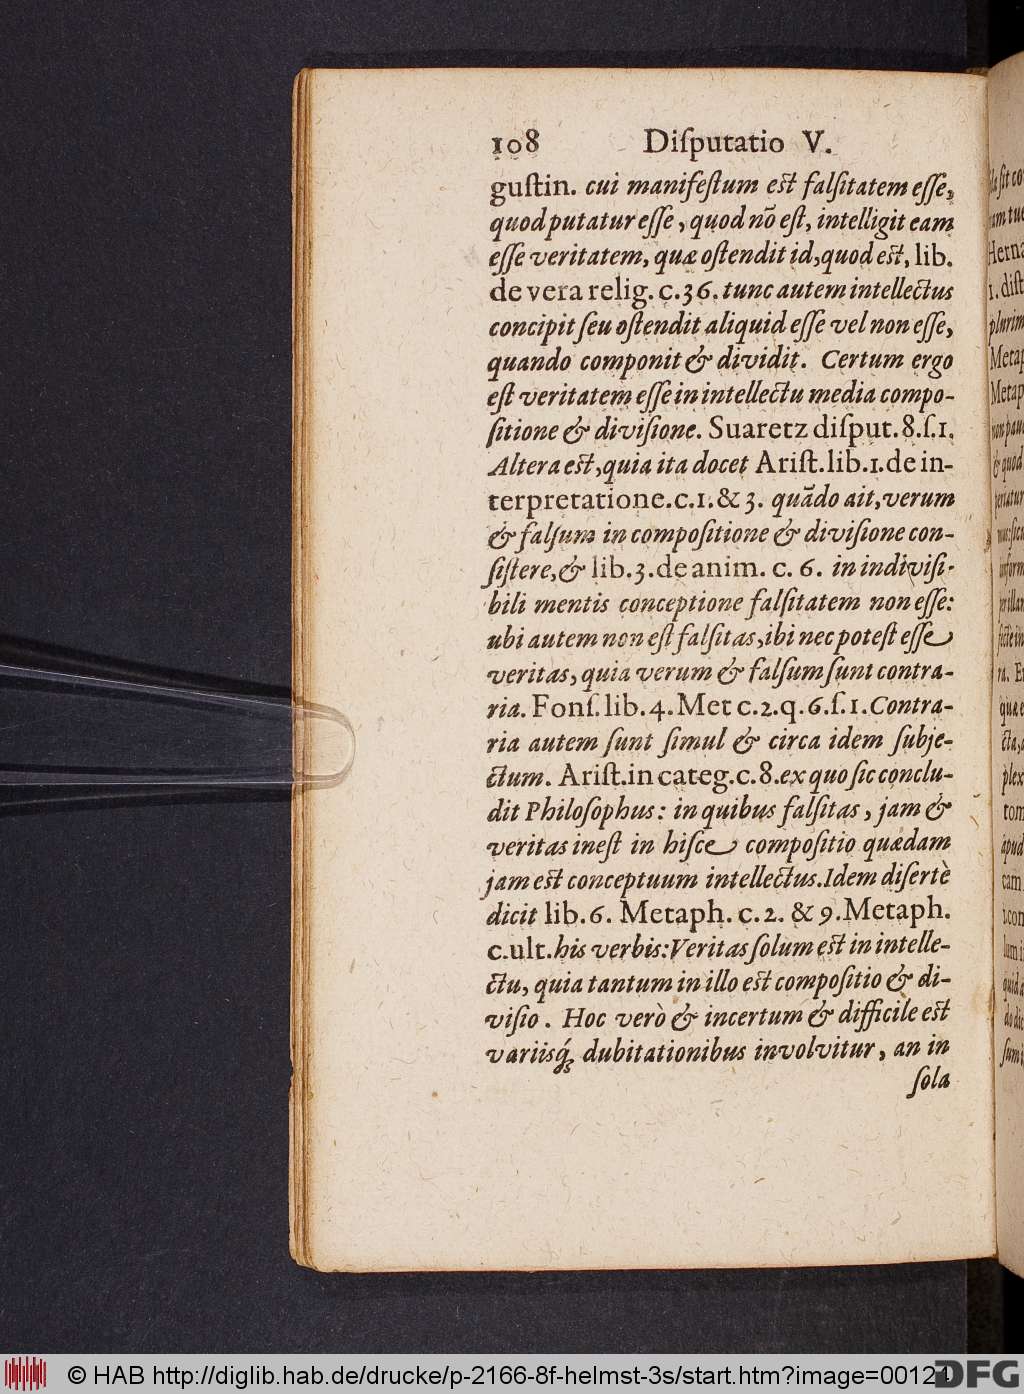 108 Diſputatio V.
guſtin. cui manifeſtum eſt falſitatem eſſe,
quod putatur eſſe, quod nō eſt, intelligit eam
eſſe veritatem, quæ oſtendit id, quod eſt, lib.
de vera relig. c. 36. tunc autem intellectus
concipit ſeu oſtendit aliquid eſſe vel non eſſe,
quando componit & dividit. Certum ergo
eſt veritatem eſſe in intellectu media compo-
ſitione & diviſione. Suaretz diſput. 8. ſ. 1.
Altera eſt, quia ita docet Ariſt. lib. 1. de in-
terpretatione. c. 1. & 3. quādo ait, verum
& falſum in compoſitione & diviſione con-
ſiſtere, & lib. 3. de anim. c. 6. in indiviſi-
bili mentis conceptione falſitatem non eſſe:
ubi autem non eſt falſitas, ibi nec poteſt eſſe
veritas, quia verum & falſum ſunt contra-
ria. Fonſ. lib. 4. Met c. 2. q. 6. ſ. 1. Contra-
ria autem ſunt ſimul & circa idem ſubje-
ctum. Ariſt. in categ. c. 8. ex quo ſic conclu-
dit Philoſophus: in quibus falſitas, jam &
veritas ineſt in hiſce compoſitio quædam
jam eſt conceptuum intellectus. Idem diſertè
dicit lib. 6. Metaph. c. 2. & 9. Metaph.
c. ult. his verbis: Veritas ſolum eſt in intelle-
ctu, quia tantum in illo eſt compoſitio & di-
viſio. Hoc verò & incertum & difficile eſt
variisq́; dubitationibus involvitur, an in
ſola
© HAB http://diglib.hab.de/drucke/p-2166-8f-helmst-3s/start.htm?image=00124
DFG